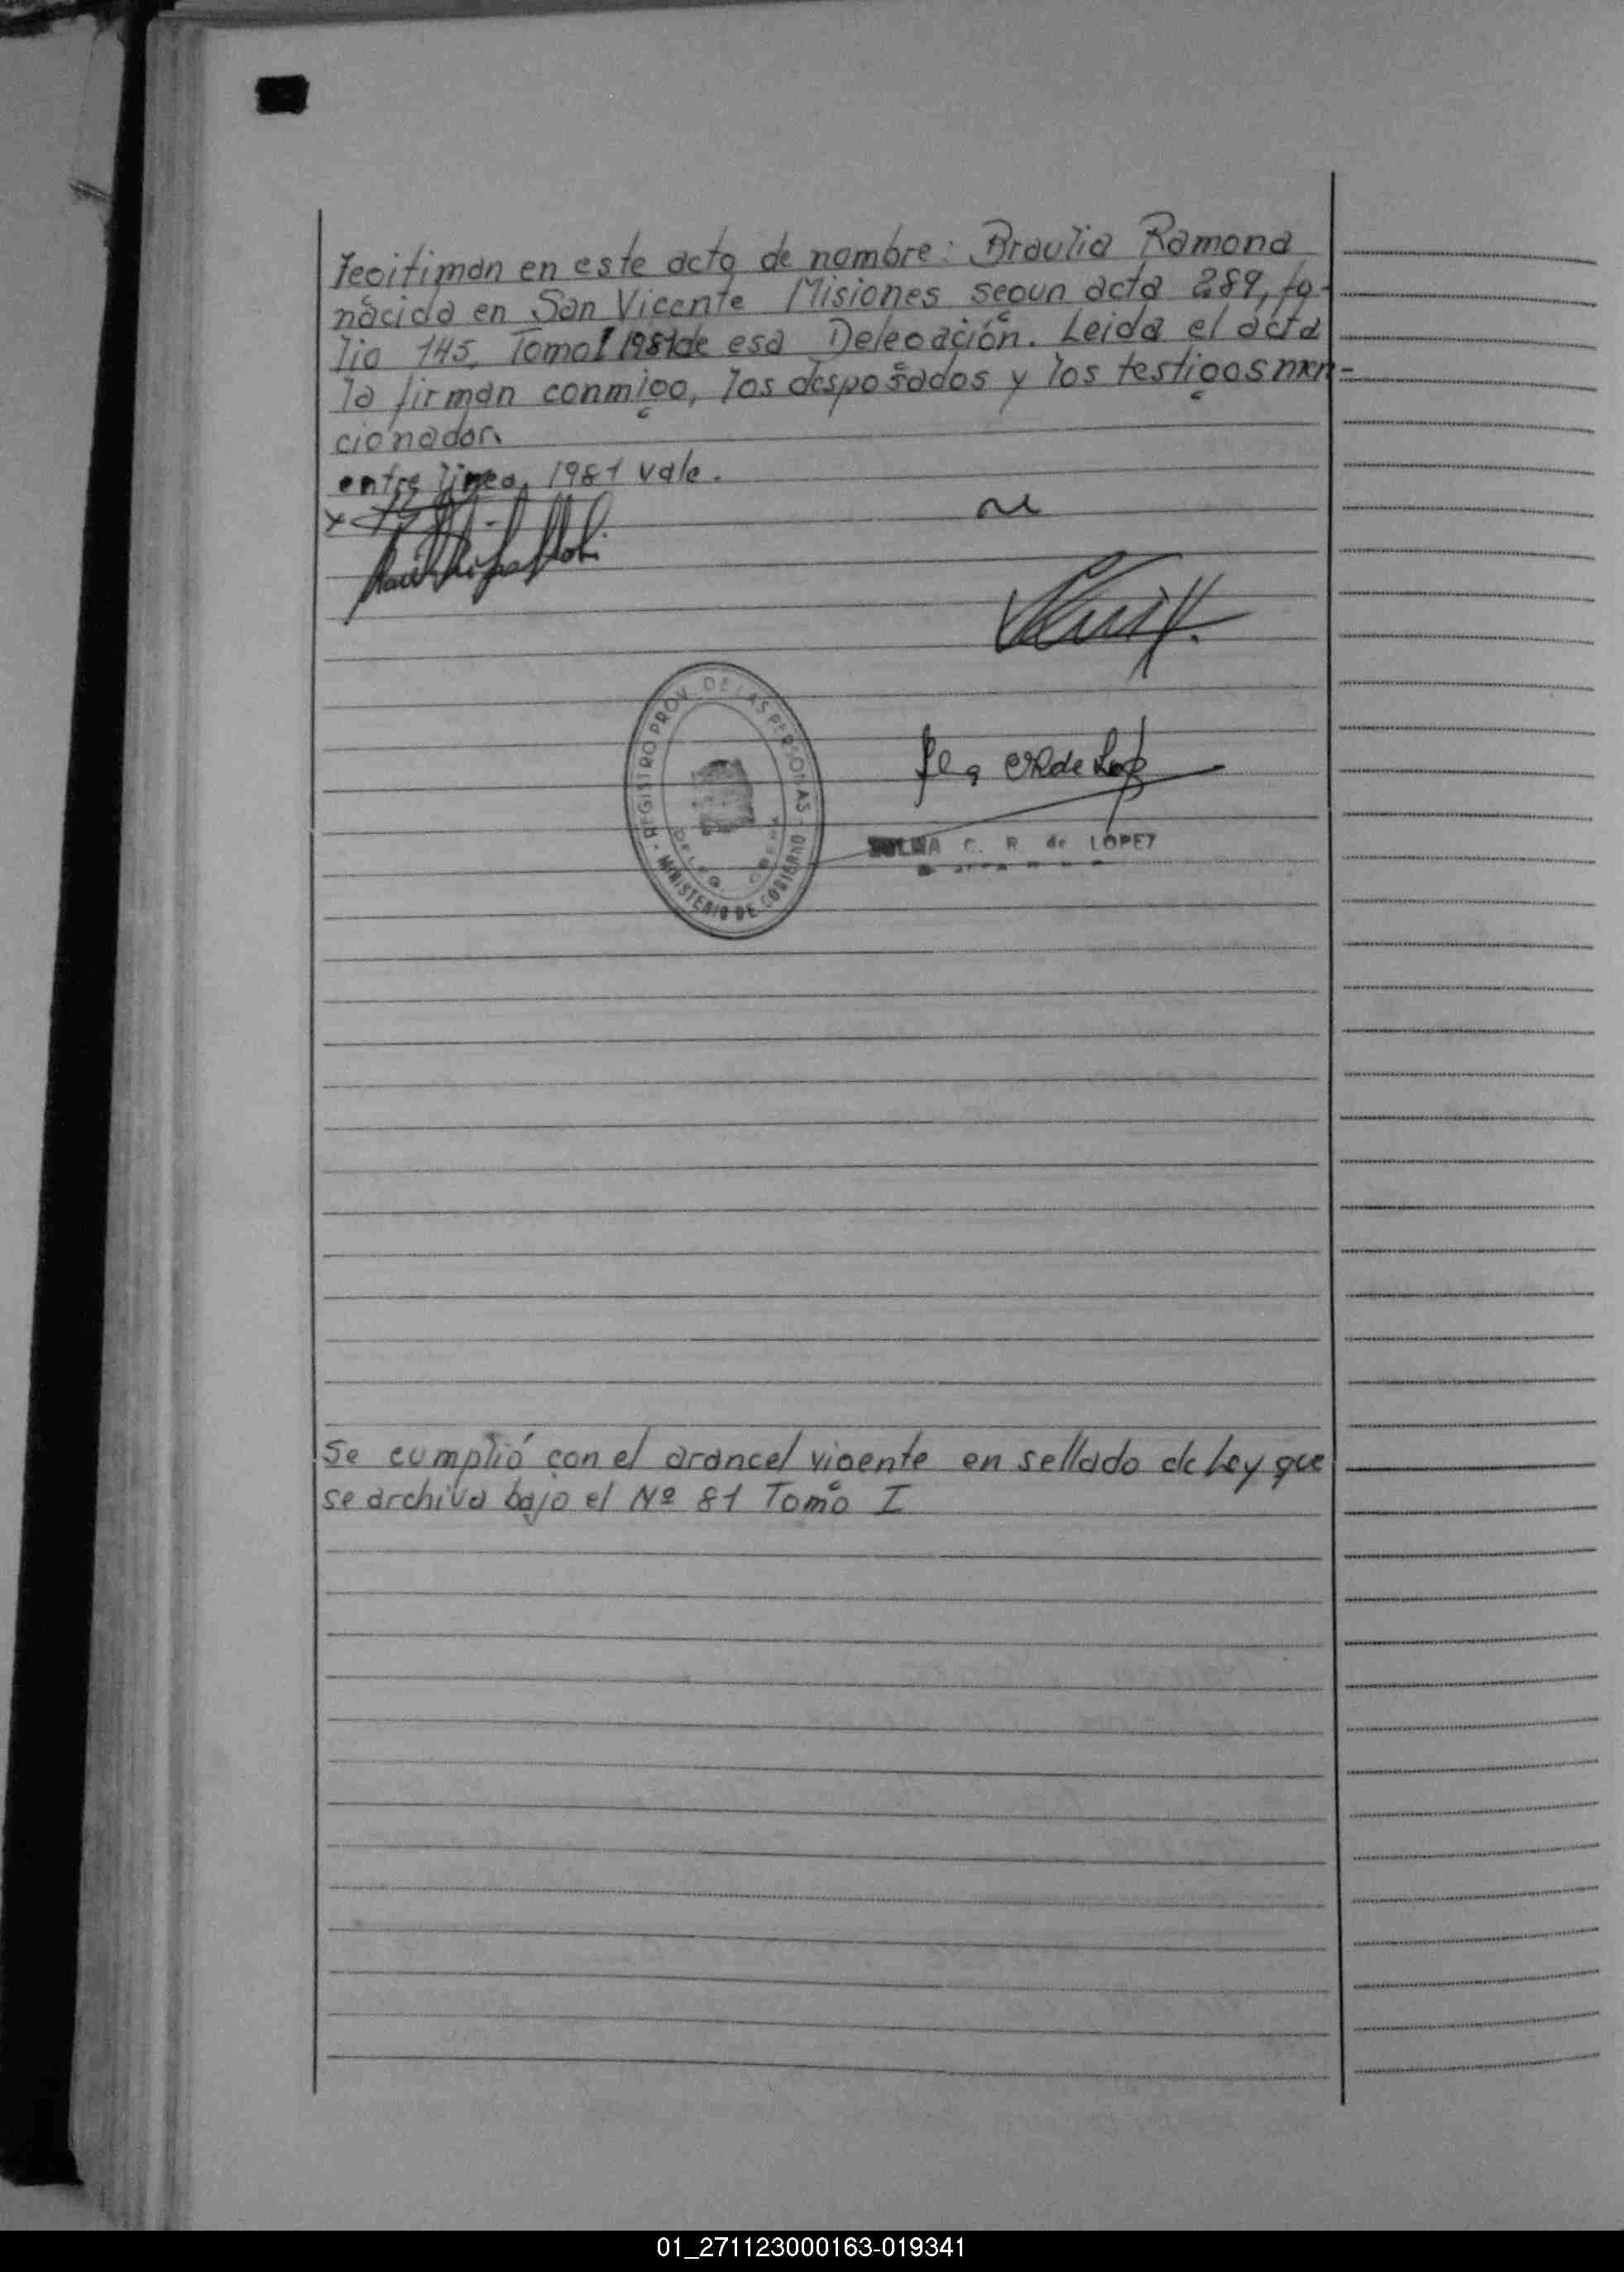 legitiman en este acto de nombre: Braulia Ramona
nacida en San Vicente Misiones segun acta 289, fo-
lio 145, Tomo I 1981 de esa Delegación. Leida el acta
la firman conmigo, los desposados y los testigos men-
cionados
entre linea, 1981 vale.
REGISTRO PROV. DE LAS PERSONAS
MINISTERIO DE GOBIERNO
DELEG. OBERA
ZULMA C. R. de LOPEZ
Se cumplió con el arancel vigente en sellado de Ley que
se archiva bajo el Nº 81 Tomo I
01_271123000163-019341